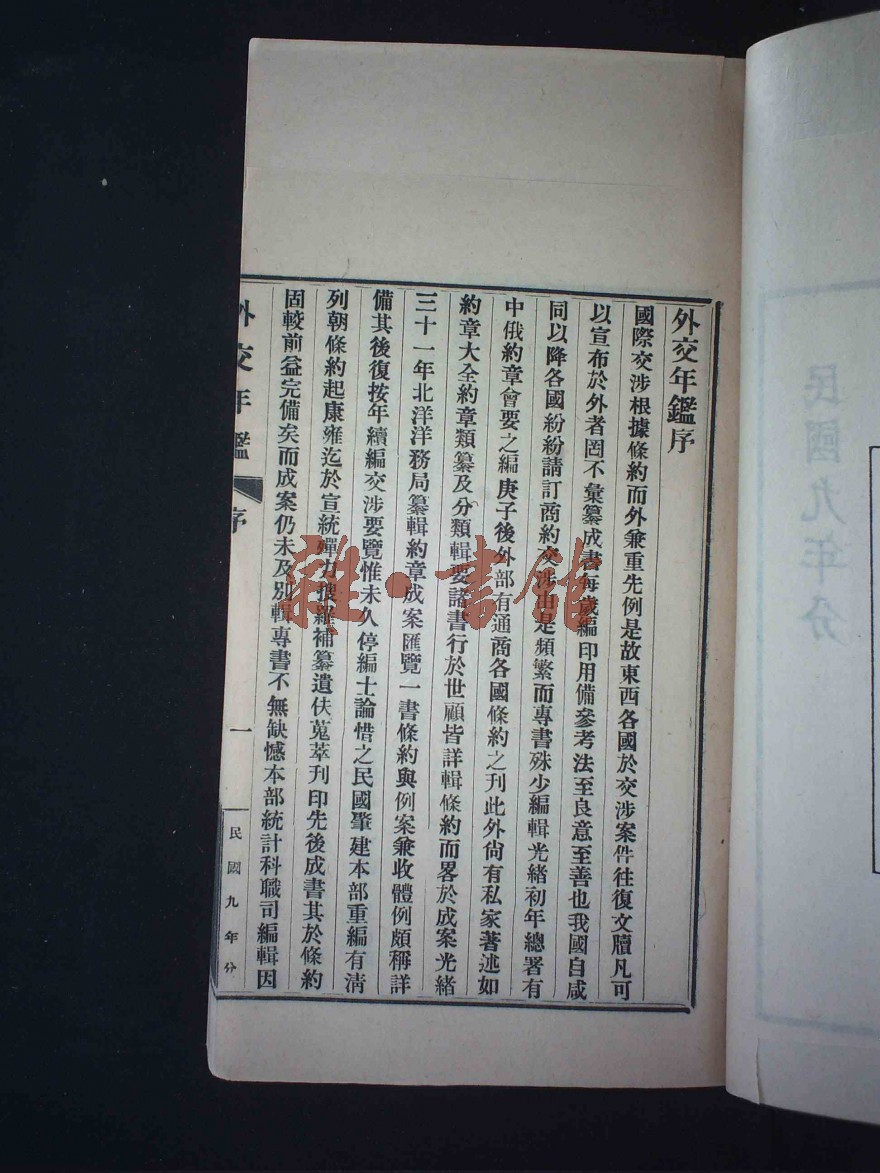 外交年鑑序
國際交涉根據條約而外兼重先例是故東西各國於交涉案件往復文牘凡可
以宣布於外者罔不彙纂成書每歲編印用備參考法至良意至善也我國自咸
同以降各國紛紛請訂商約交涉由是頻繁而專書殊少編輯光緒初年總署有
中俄約章會要之編庚子後外部有通商各國條約之刊此外尙有私家著述如
約章大全約章類纂及分類輯要諸書行於世顧皆詳輯條約而畧於成案光緒
三十一年北洋洋務局纂輯約章成案匯覽一書條約與例案兼收體例頗稱詳
備其後復按年續編交涉要覽惟未久停編士論惜之民國肇建本部重編有淸
列朝條約起康雍迄於宣統殫力搜羅補纂遺佚蒐萃刊印先後成書其於條約
固較前益完備矣而成案仍未及別輯專書不無缺憾本部統計科職司編輯因
外交年鑑 序 一 民國九年分
雜·書館
民國九年分